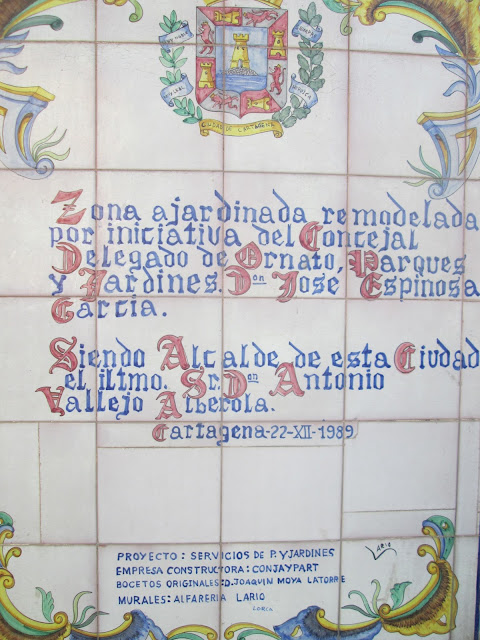 CIUDAD DE CARTAGENA
Zona ajardinada remodelada
por iniciativa del Concejal
Delegado de Ornato, Parques
y Jardines. Don José Espinosa
García.
Siendo Alcalde de esta Ciudad
el iltmo. Sr. Don Antonio
Vallejo Alberola.
Cartagena-22-XII-1989
PROYECTO: SERVICIOS DE P. Y JARDINES
EMPRESA CONSTRUCTORA: CONJAYPART
BOCETOS ORIGINALES: D. JOAQUIN MOYA LATORRE
MURALES: ALFARERIA LARIO
LORCA
LARIO